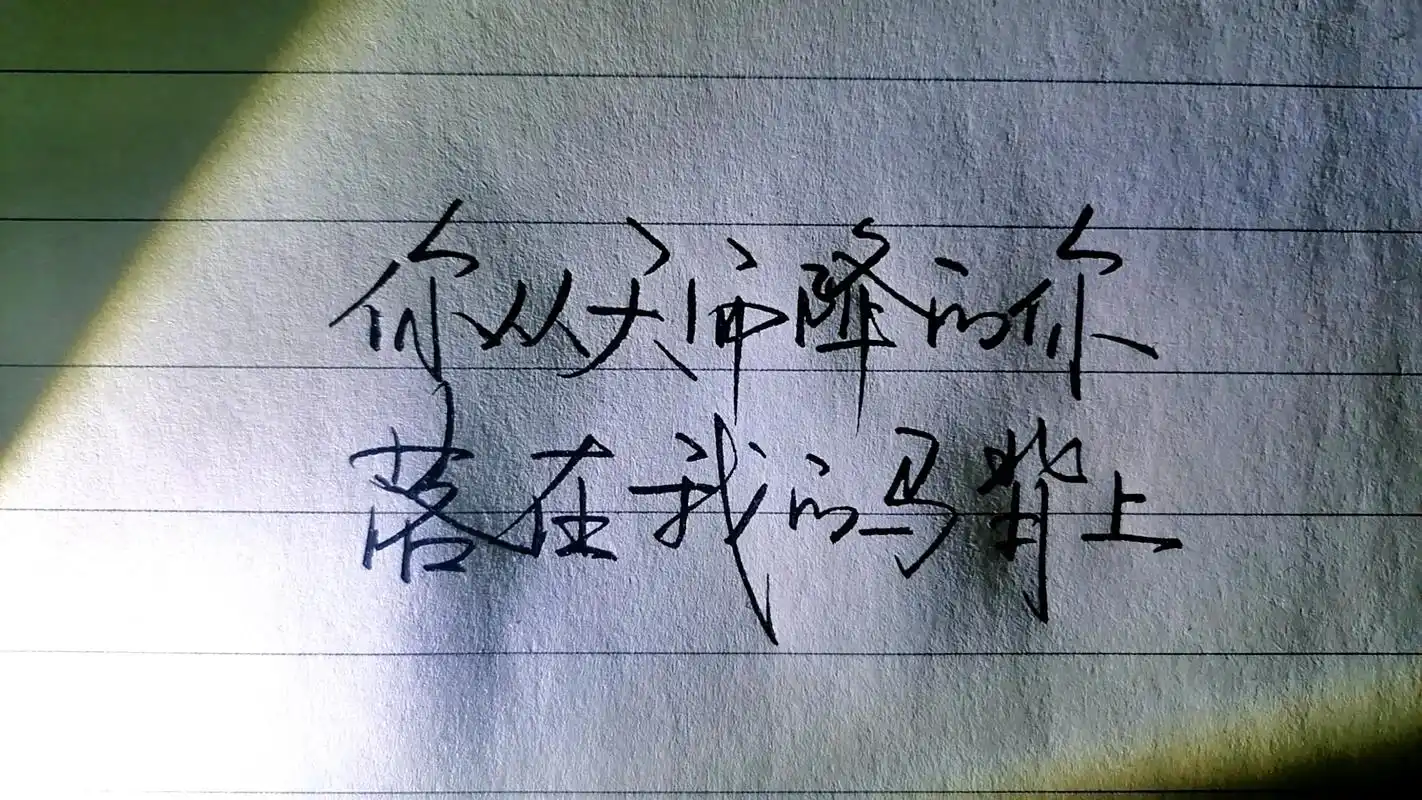 你从天而降的你
落在我的马背上